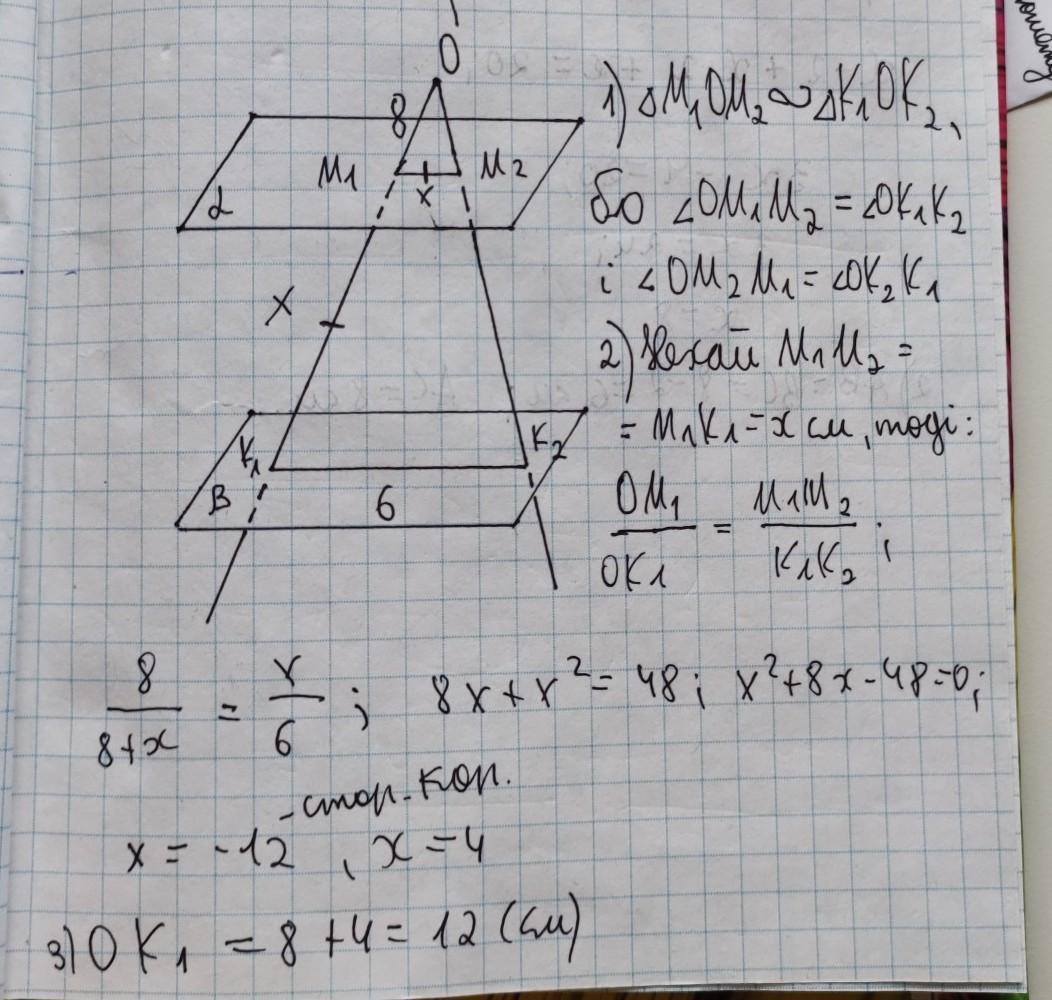 O
8
M₁ x M₂
α
x
K₁ K₂
β 6
1) ΔM₁OM₂ ∞ ΔK₁OK₂,
бо ∠OM₁M₂ = ∠OK₁K₂
і ∠OM₂M₁ = ∠OK₂K₁
2) Нехай M₁M₂ =
= M₁K₁ = x см, тоді:
OM₁/OK₁ = M₁M₂/K₁K₂ ;
8/(8+x) = x/6 ; 8x + x² = 48; x² + 8x - 48 = 0;
- стор. кор.
x = -12 , x = 4
3) OK₁ = 8 + 4 = 12 (см)